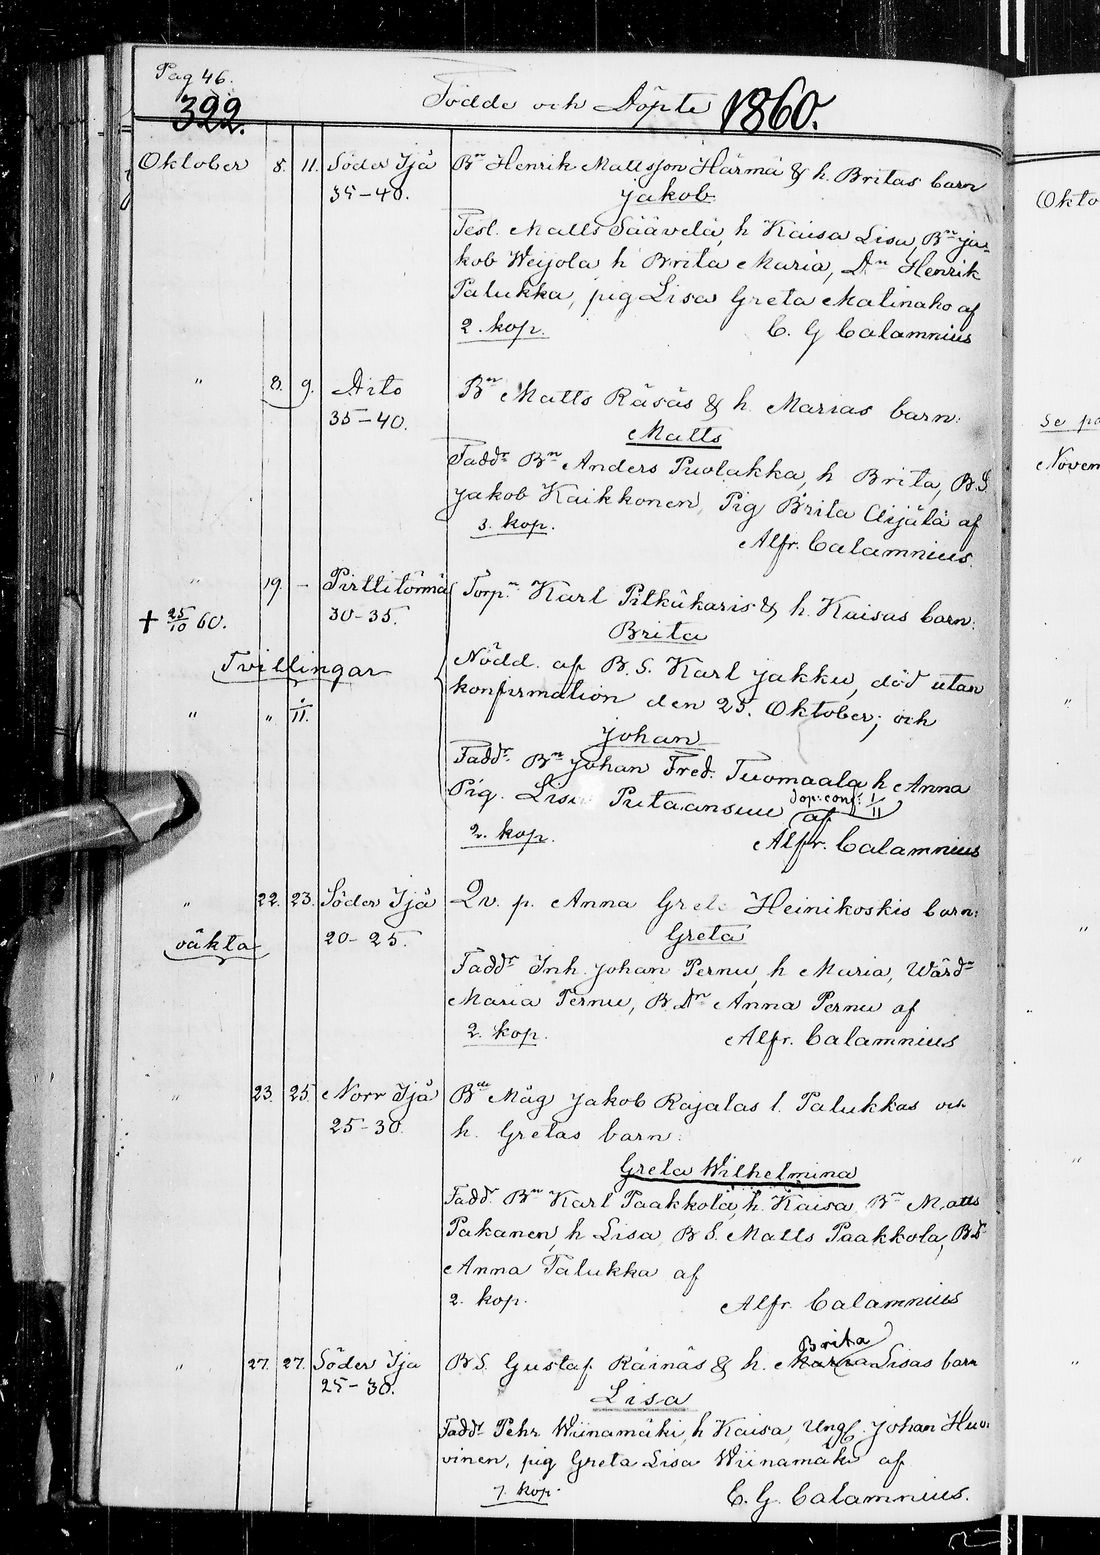 Pag 46.
322.
Födde och Döpte 1860.
Oktober 8. 11. Söder Ijå Bn Henrik Mattsson Härmä & h. Britas barn
35-40. Jakob.
Test. Matts Säävelä, h Kaisa Lisa, Bn Ja-
kob Weijola h Brita Maria, Dn Henrik
Palukka, pig Lisa Greta Matinaho af
2. kop. C. G Calamnius
" 8. 9. Dito Bn Matts Räsäs & h. Marias barn:
35-40. Matts
Faddr Bn Anders Puolakka, h Brita, B.S.
Jakob Kaikkonen, Pig Brita Äijälä af
3. kop. Alfr. Calamnius.
" 19. - Pirttitörmä Torpn Karl Pitkäkaris & h. Kaisas barn:
+ 25/10 60. 30-35. Brita
Tvillingar Nödd. af B.S. Karl Jakku, död utan
konfirmation den 25. Oktober; och
" " 1/11. Johan
Faddr. Bn Johan Fred. Tuomaala h Anna
Pig. Lisa Putaansuu dop. conf: 1/11 af
2. kop. Alfr. Calamnius
" 22. 23. Söder Ijå Qv. p. Anna Greta Heinikoskis barn:
oäkta 20-25. Greta
Faddr Inh. Johan Pernu, h Maria, Wärdr
Maria Pernu, B.Dr Anna Pernu af
2. kop. Alfr. Calamnius
" 23. 25. Norr Ijå Bde Måg Jakob Rajalas l. Palukkas och
25-30. h. Gretas barn:
Greta Wilhelmina
Faddr Bn Karl Paakkola, h. Kaisa, Bn Matts
Pakanen, h Lisa, B S. Matts Paakkola, B D
Anna Palukka af
2. kop. Alfr. Calamnius
Brita
" 27. 27. Söder Ija B S. Gustaf Räinäs & h. Maria Lisas barn
25-30. Lisa
Faddr Pehr Wiinamäki, h Kaisa, Ungk. Johan Huo-
vinen, pig Greta Lisa Wiinamäki af
7. kop. C. G. Calamnius.
Okto
se pa
Novem